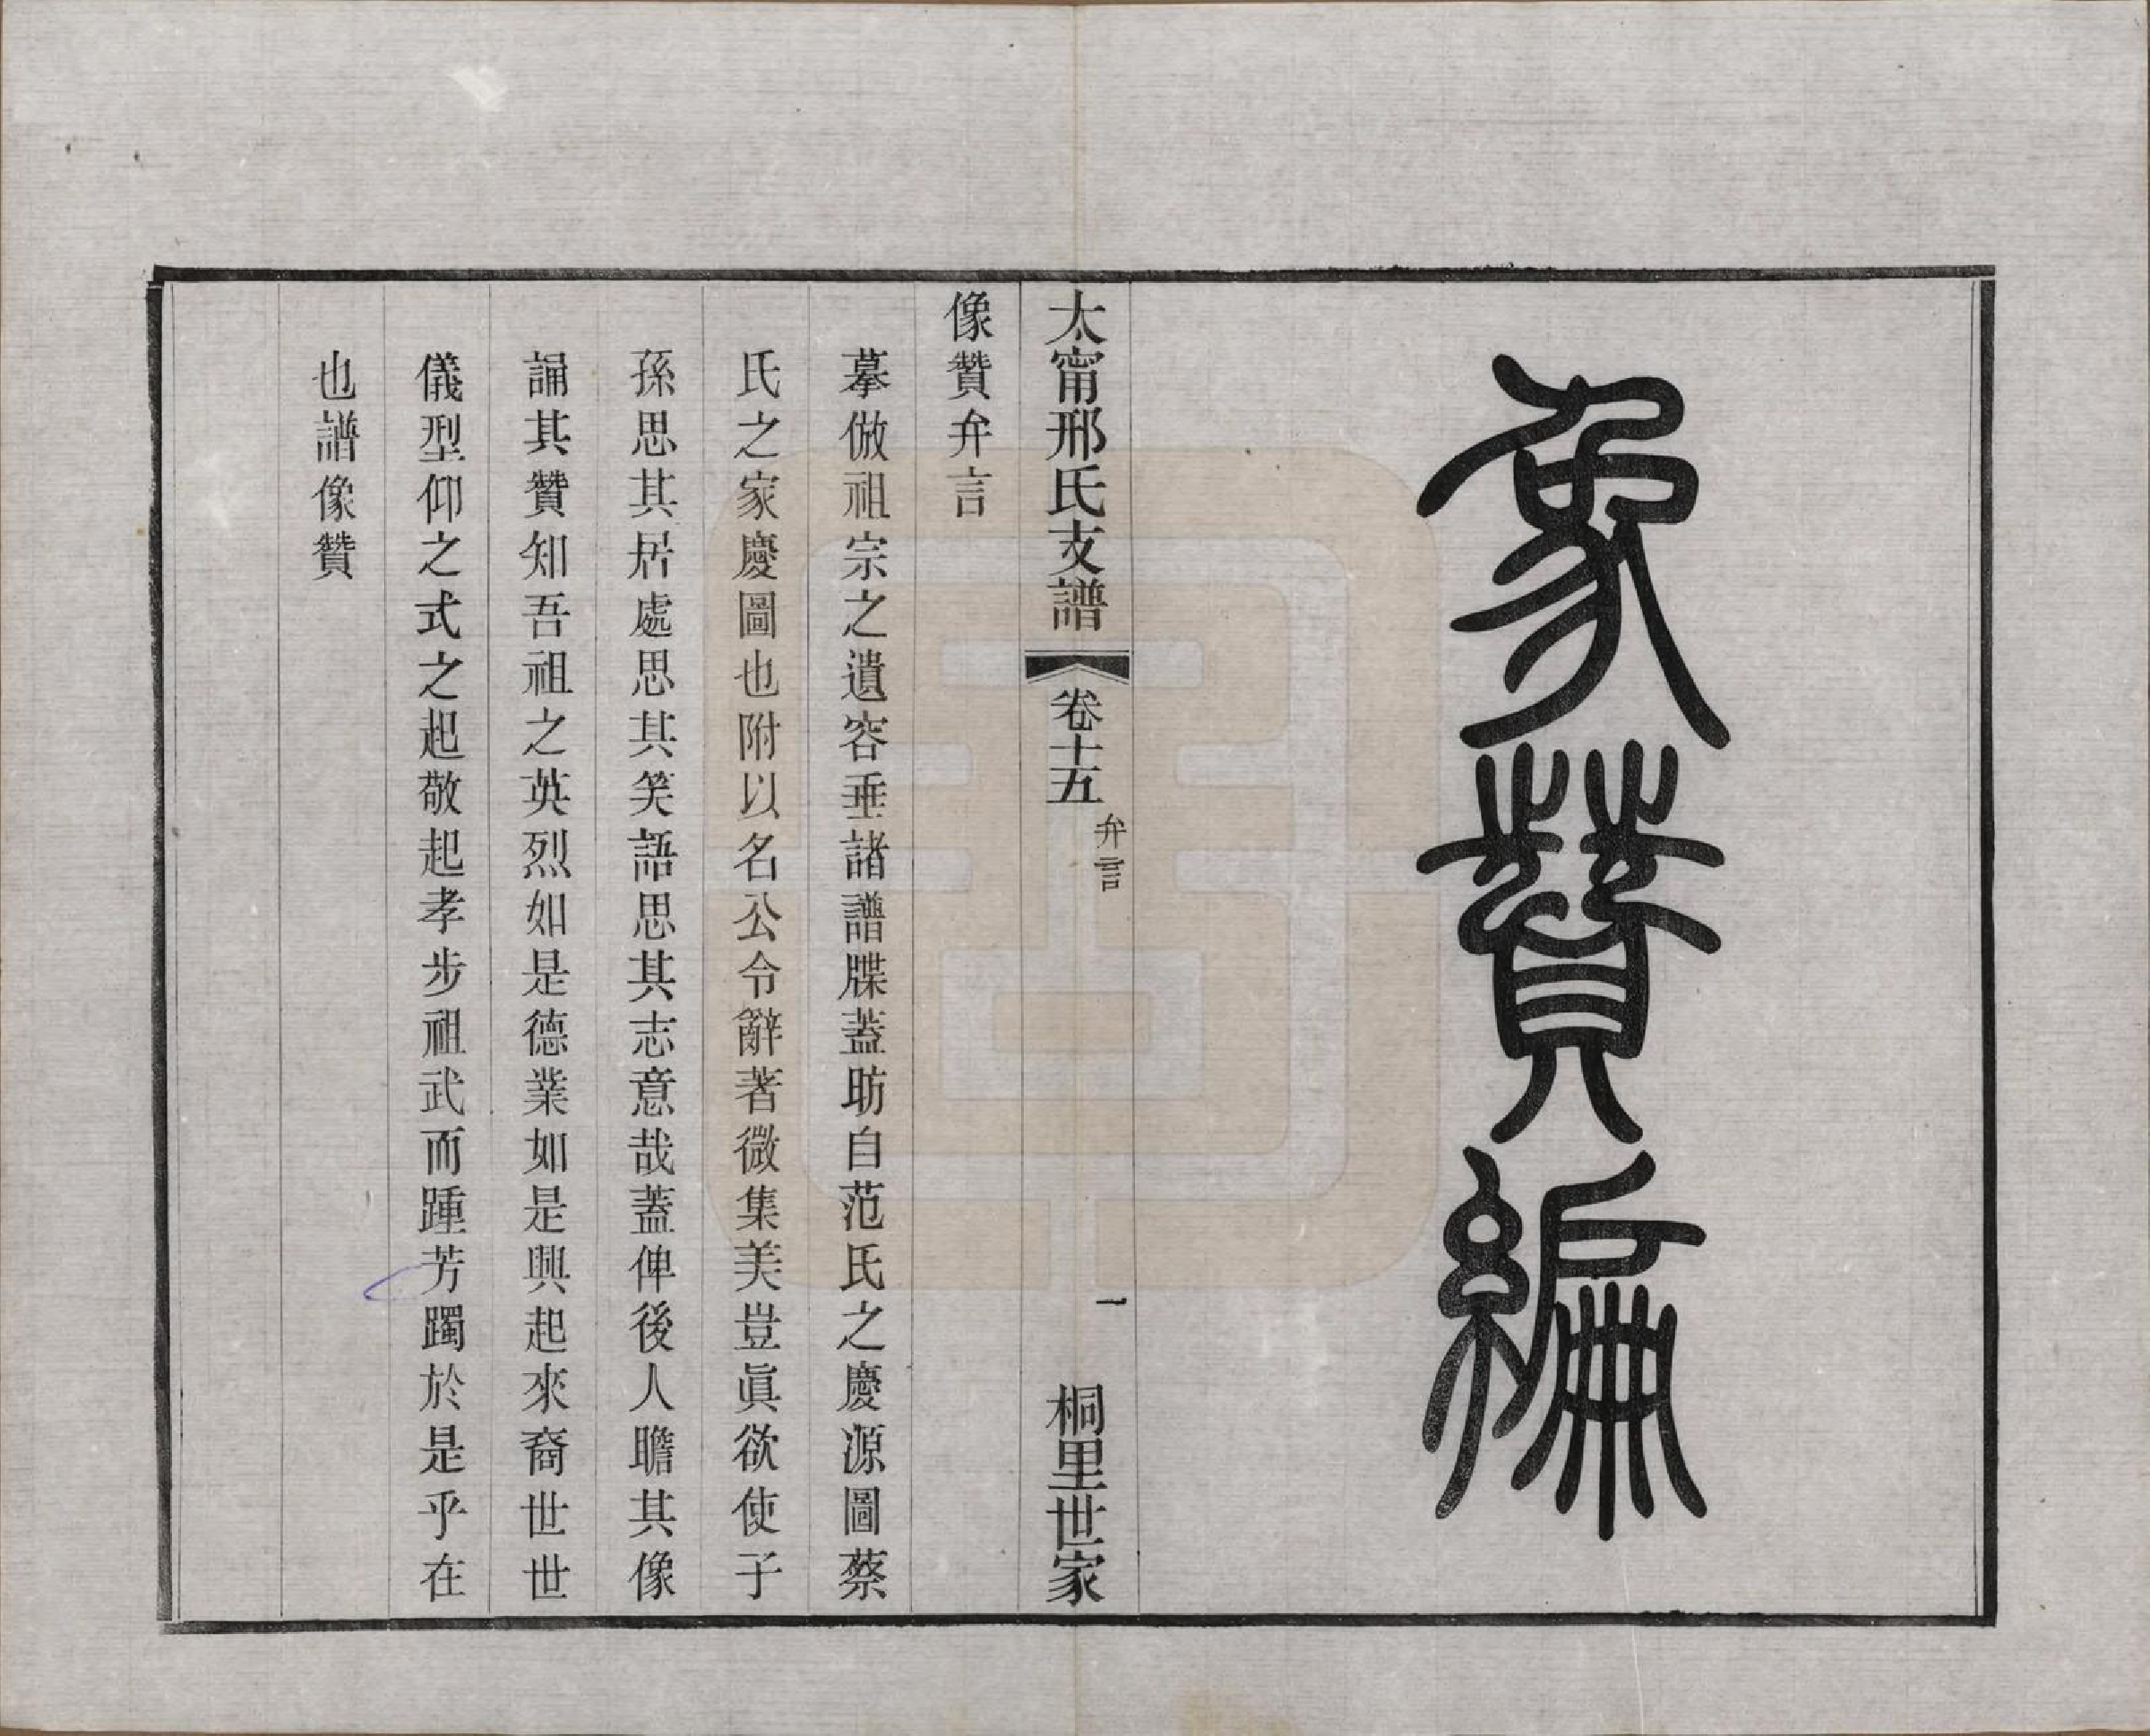 象贊編
太甯邢氏支譜
卷十五
弁言
一
桐里世家
像贊弁言
摹倣祖宗之遺容垂諸譜牒蓋昉自范氏之慶源圖蔡
氏之家慶圖也附以名公令辭著微集美豈眞欲使子
孫思其居處思其笑語思其志意哉蓋俾後人瞻其像
誦其贊知吾祖之英烈如是德業如是興起來裔世世
儀型仰之式之起敬起孝步祖武而踵芳躅於是乎在
也譜像贊